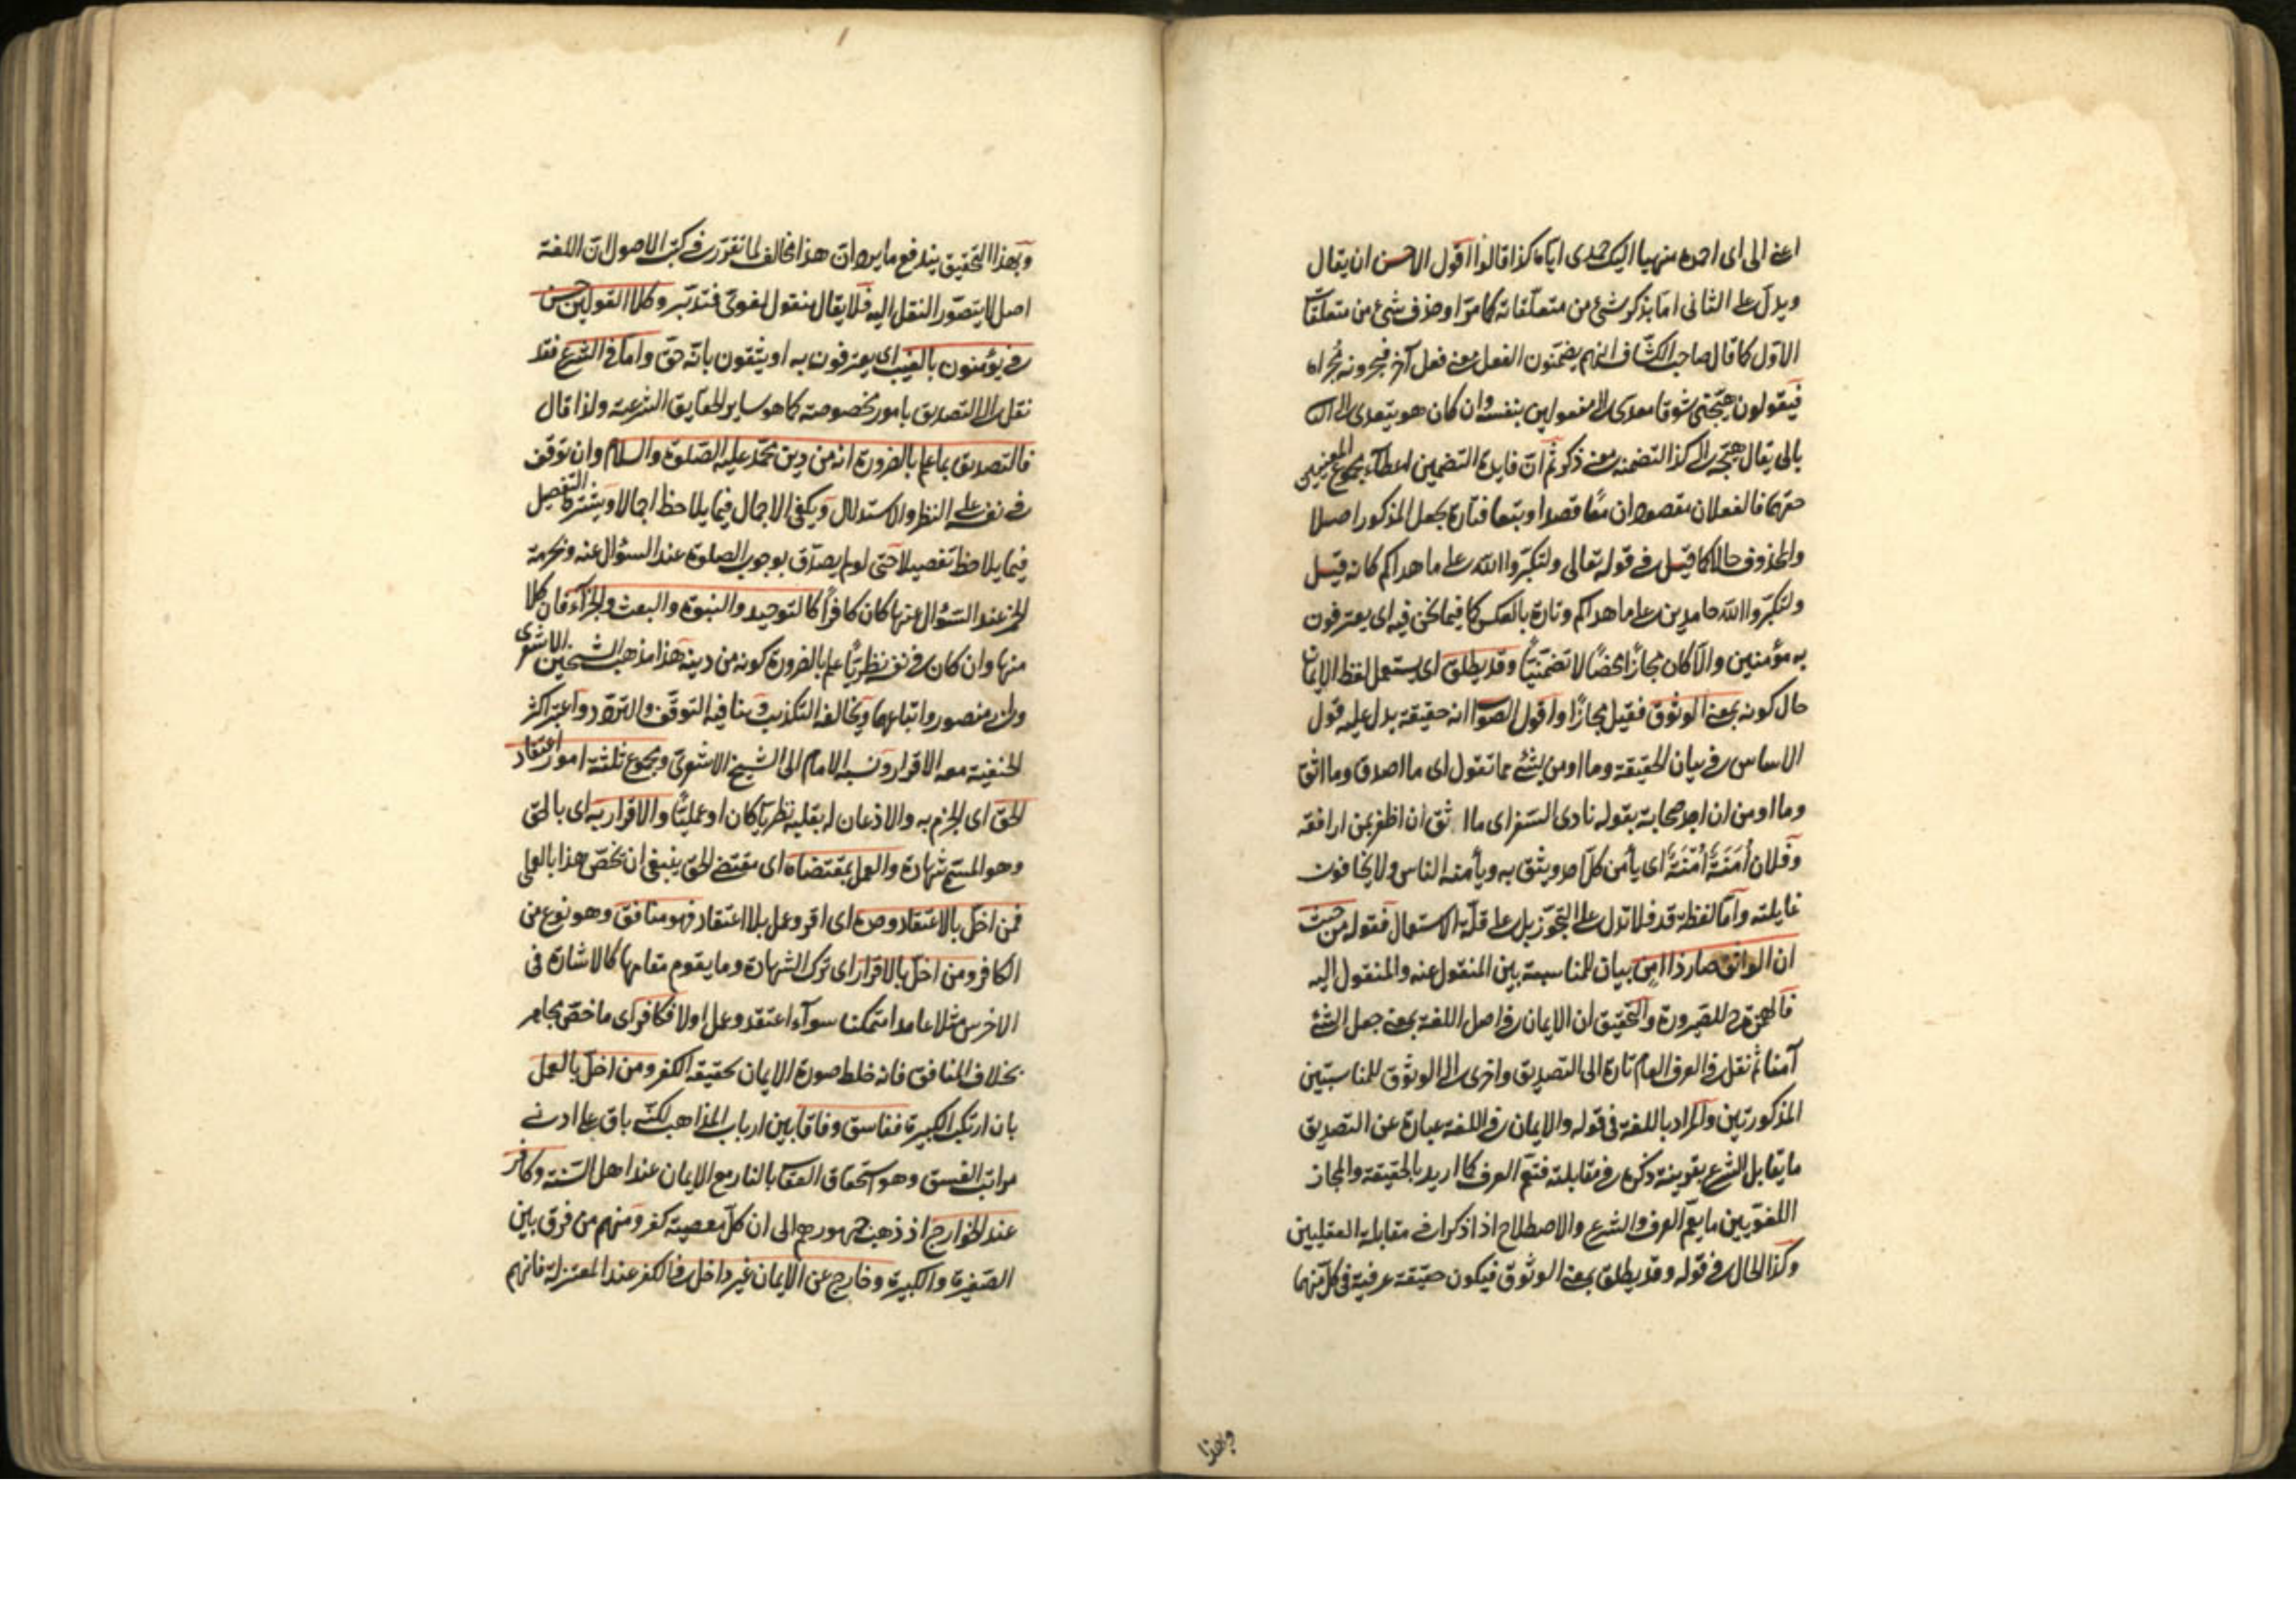 اعنى الى اى احمده منهيا اليك حمدى اياه كذا قالوا اقول الاحسن ان يقال
ويدل على الثانى اما بذكر شئ من متعلقاته كما مرّ او حذف شئ من متعلقات
الاول كما قال صاحب الكشاف انهم يضمّنون الفعل معنى فعل آخر فيجرونه مُجراه
فيقولون هيّجنى شوقا معدى الى مفعولين بنفسه وان كان هو يتعدى الى الثانى
بالى يقال هيّجه الى كذا لتضمنه معنى ذكّر ثم ان فايدة التضمين اعطاء مجموع المعنيين
حقهما فالفعلان مقصودان معًا قصدا وتبعا فتارة يجعل المذكور اصلا
والمحذوف حالا كما قيل فى قوله تعالى ولتكبّروا الله على ما هداكم كانه قيل
ولتكبّروا الله حامدين على ما هداكم وتارة بالعكس كما فيما نحن فيه اى يعترفون
به مؤمنين والّا كان مجازًا محضًا لا تضمّنيًّا وقد يطلق اى يستعمل لفظ الايمان
حال كونه بمعنى الوثوق فقيل مجازًا واقول الصواب انه حقيقة يدل عليه قول
الاساس فى بيان الحقيقة وما اومن بشئ مما تقول اى ما اصدق وما اثق
وما اومن ان اجد صحابة بقوله ناوى السفر اى ما اثق ان اظفر بمن ارافقه
وفلان أُمَنَةٌ أَمَنَةٌ اى يأمن كلّ احد ويثق به ويأمنه الناس ولا يخافون
غايلته وامّا لفظة قد فلا تدل على التجوّز بل على قلّة الاستعمال فقوله من حيث
ان الواثق صار ذا امن بيان للمناسبة بين المنقول عنه والمنقول اليه
فالهمزة ح للصيرورة والتحقيق ان الايمان فى اصل اللغة بمعنى جعل الشئ
آمنا ثم نقل فى العرف العام تارة الى التصديق واخرى الى الوثوق للمناسبتين
المذكورتين والمراد باللغة فى قوله والايمان فى اللغة عبارة عن التصديق
ما يقابل الشرع بقرينة ذكره فى مقابلته فتعمّ العرف كما اريد بالحقيقة والمجاز
اللغويين ما يعمّ العرف والشرع والاصطلاح اذا ذكرا فى مقابلة العقليين
وكذا الحال فى قوله وقد يطلق بمعنى الوثوق فيكون حقيقة عرفية فى كل منهما
وبهذا
وبهذا التحقيق يندفع ما يرد ان هذا مخالف لما تقرّر فى كتب الاصول ان اللغة
اصل لا يتصوّر النقل اليه فلا يقال منقول لغوىّ فتدبّر وكلا القولين حسن
فى يؤمنون بالغيب اى يعترفون به او يثقون بانّه حقّ وامّا فى الشرع فقد
نقل الى التصديق بامور مخصوصة كما هو ساير الحقايق الشرعية ولذا قال
فالتصديق بما علم بالضرورة انه من دين محمّد عليه الصّلوة والسلام وان توقف
فى نفسه على النظر والاستدلال ويكفى الاجمال فيما يلاحظ اجمالا ويشترط التفصيل
فيما يلاحظ تفصيلا حتى لو لم يصدّق بوجوب الصلوة عند السؤال عنه وبحرمة
الخمر عند السّؤال عنها كان كافرًا كالتوحيد والنبوة والبعث والجزآء فان كلا
منها وان كان فى نفسه نظريًّا علم بالضرورة كونه من دينه هذا مذهب الشيخين الاشعرى
وابى منصور واتباعهما ويخالفه التكذيب وينافيه التوقّف والتردّد واعتبر اكثر
الحنفية معه الاقرار ونسبه الامام الى الشيخ الاشعرىّ ومجموع ثلثة امور اعتقاد
الحقّ اى الجزم به والاذعان له بقلبه نظريّا كان او عمليًّا والاقرار به اى بالحقّ
وهو المسمّى شهادة والعمل بمقتضاه اى مقتضى الحق ينبغى ان يخصّ هذا بالعملى
فمن اخلّ بالاعتقاد وحده اى اقر وعمل بلا اعتقاد فهو منافق وهو نوع من
الكافر ومن اخلّ بالاقرار اى ترك الشهادة وما يقوم مقامها كالاشارة فى
الاخرس مثلا عامدا متمكنا سوآء اعتقد وعمل اولا فكافر اى ماحض مجاهر
بخلاف المنافق فانه خلط صورة الايمان بحقيقة الكفر ومن اخلّ بالعمل
بان ارتكب الكبيرة ففاسق وفاقا بين ارباب المذاهب لكنّه باق على ادنى
مراتب الفسق وهو استحقاق العقاب بالنار مع الايمان عند اهل السّنة وكافر
عند الخوارج اذ ذهب جمهورهم الى ان كلّ معصية كفر ومنهم من فرق بين
الصّغيرة والكبيرة وخارج عن الايمان غير داخل فى الكفر عند المعتزلة فانهم